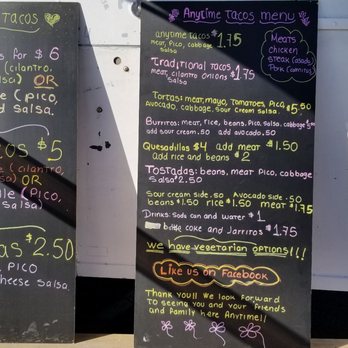 Tacos
s for $6
(cilantro,
salsa) OR
e (pico,
and
salsa.
cos $5
(cilantro,
salsa) OR
le (Pico,
salsa)
as $2.50
PICO
cheese salsa.
Anytime Tacos menu
anytime tacos $1.75
meat, Pico, cabbage
salsa
MEATS
chicken
steak (asada)
Pork (carnitas)
Traditional tacos
meat, cilantro onions $1.75
salsa
Tortas: meat, mayo, Tomatoes, Pico, $5.50
Avocado, cabbage, sour cream salsa.
Burritos: meat, rice, beans, Pico, salsa, cabbage
add sour cream .50 add avocado .50
Quesadillas $4 add meat $1.50
add rice and beans $2
Tostadas: beans, meat Pico, cabbage
salsa $2.50
Sour cream side .50 Avocado side .50
beans $1.50 rice $1.50 meat $1.75
Drinks: Soda can and water $1
bottle coke and Jarritos $1.75
We have vegetarian options!!!
Like us on Facebook
Thank you!! We look forward
to seeing you and your friends
and family here Anytime!!